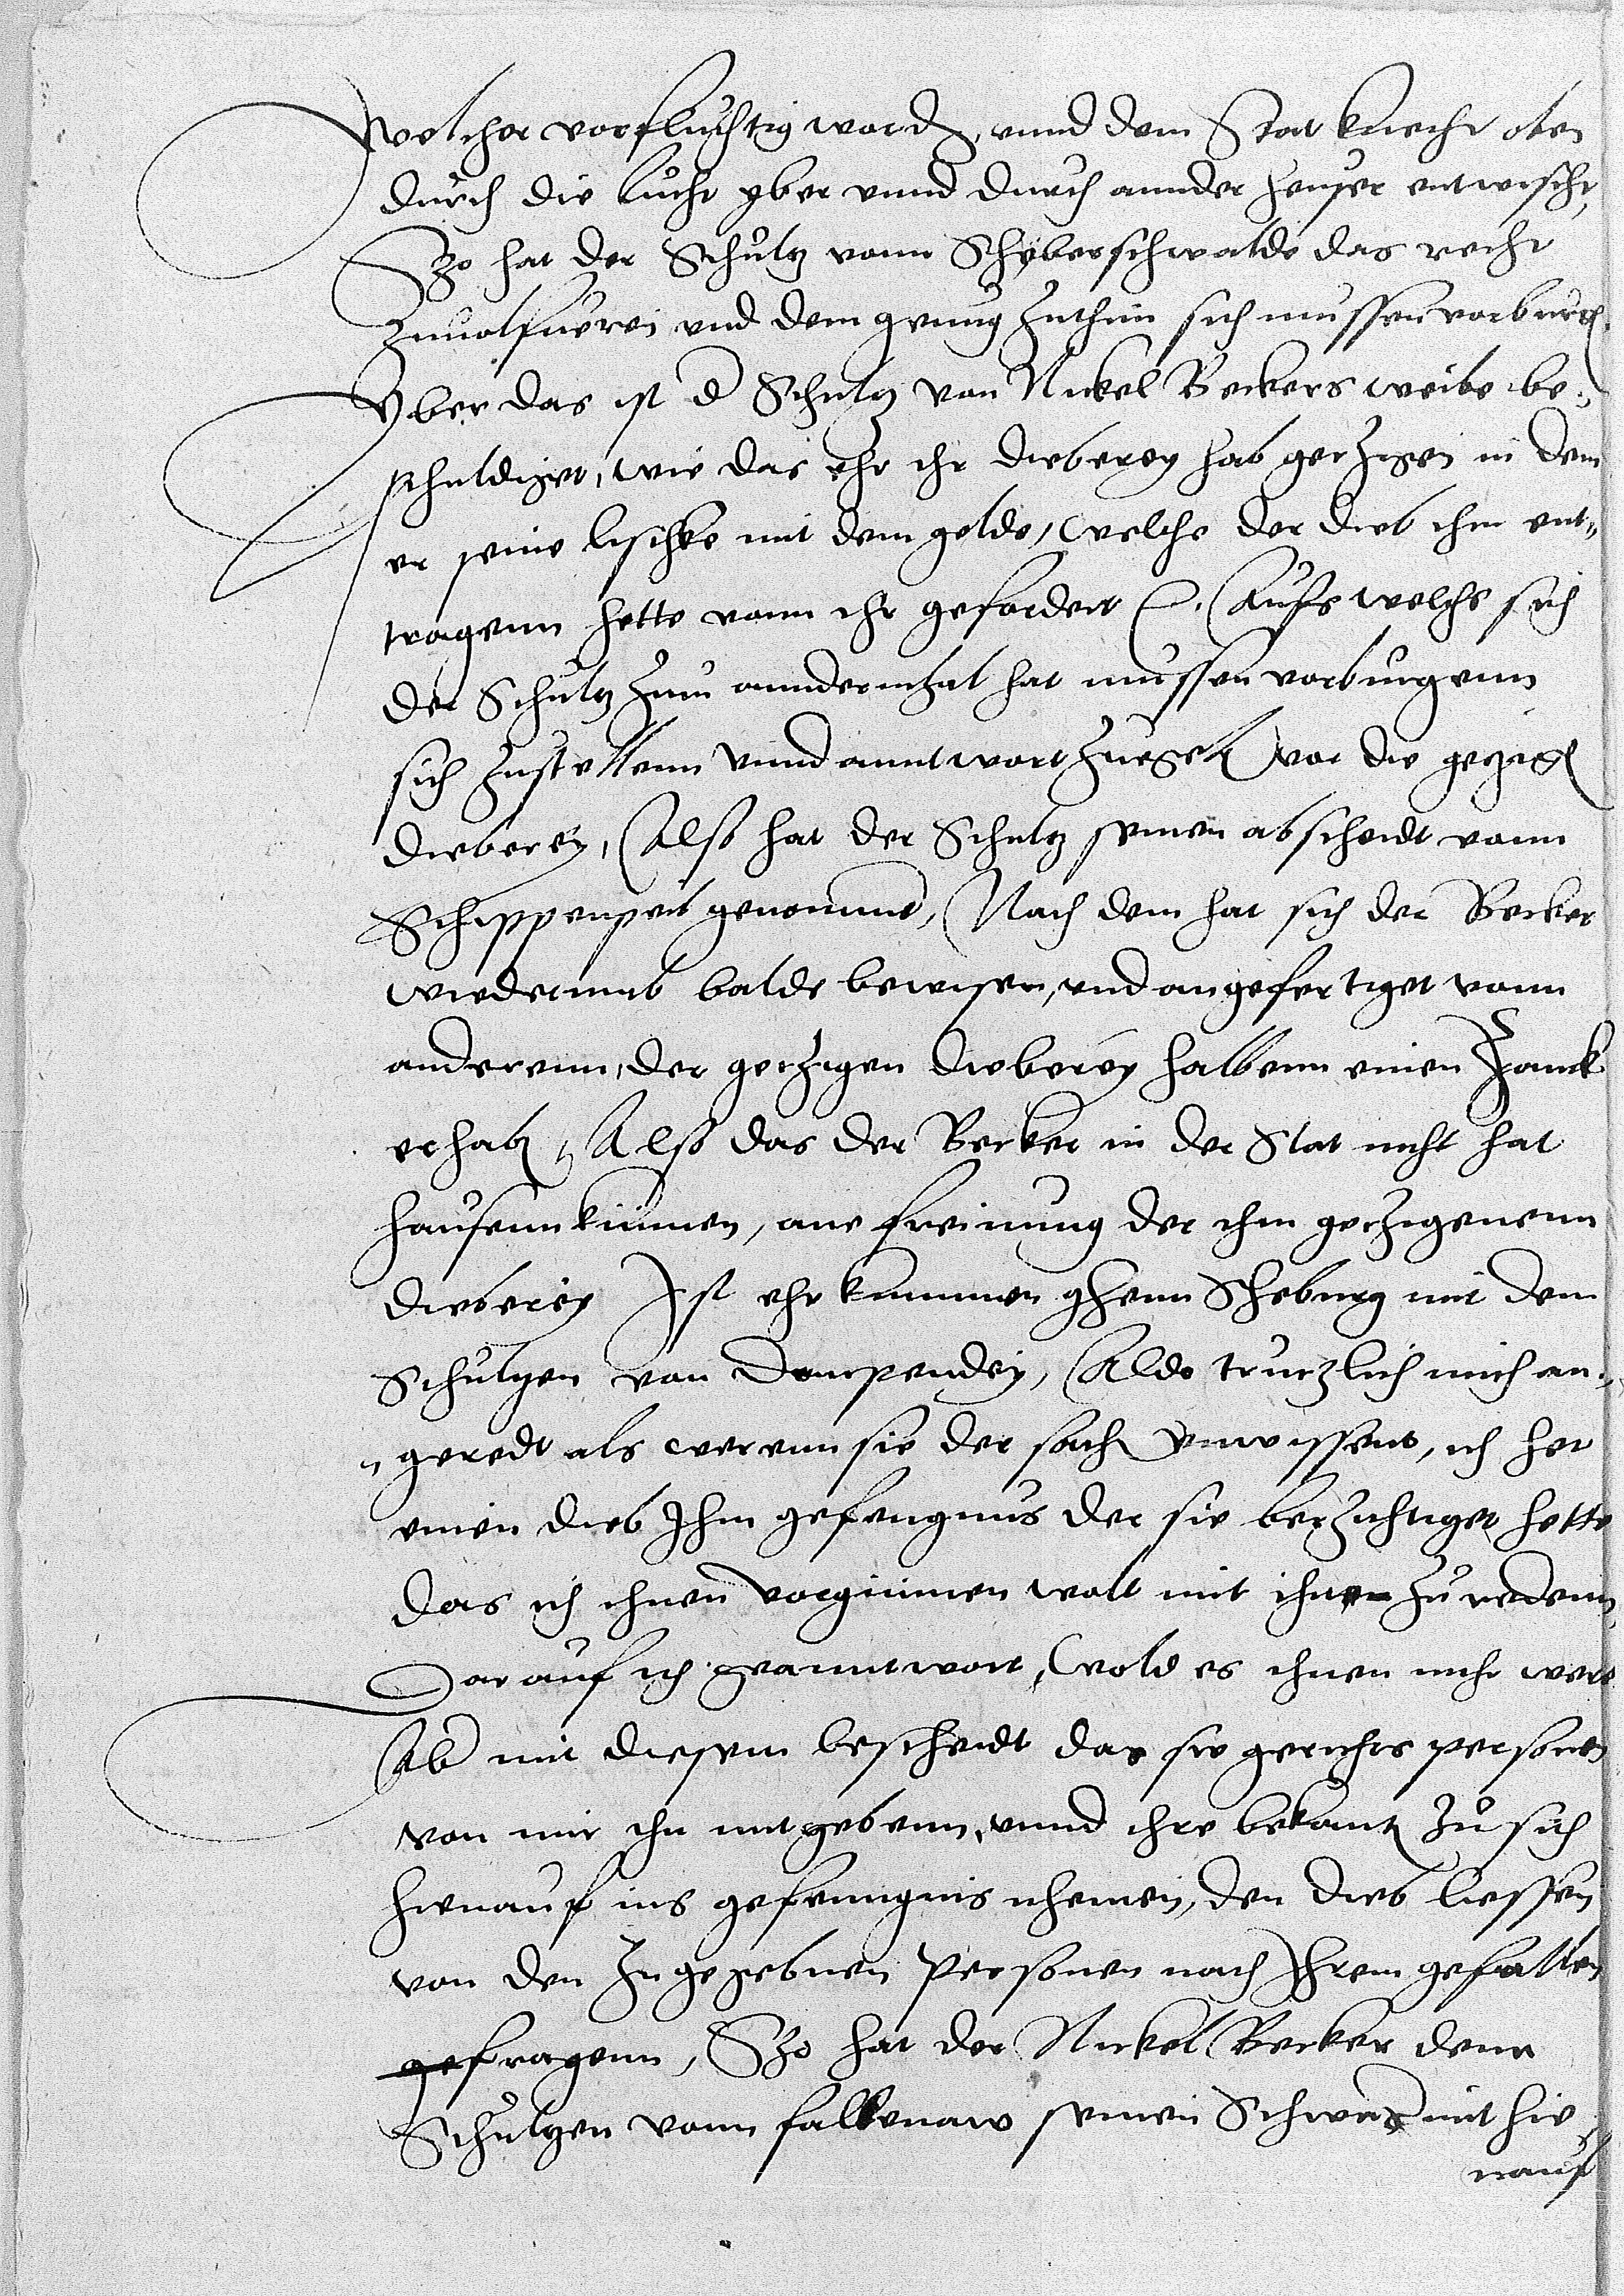 welcher vorfluchtig ward, unnd dem Stat knecht oben
durch die lucht yber unnd durch annder heuser entwischt,
Szo hat der Schultz vonn Schyberschwalde das recht
Zuuolfueren und dem genug zuthun sich mussen vorburg
Yber das ist d Schultz von Nickel Beckers weibe be-
schuldiget, wie das ehr ihr dieberey hab getzigen in dem
er seine lischke mit dem gelde, welche der dieb ihm ent-
tragenn hette vonn ihr gefordert Aufs welchs sich
der Schultz zum anndermhal hat mussen vorburgenn
sich zustellenn unnd anntwort zugeb vor die getzig
dieberey, Also hat der Schultz seinen abscheidt vonn
Schippenpeil genomme, Nach dem hat sich der Becker
wiederumb balde bewisen, und angefertiget vonn
anderenn, der getzigen dieberey halbenn einen Zanck
erhab, Also das der Becker in der Stat nicht hat
hausenn kunnen, ane freiung der ihm getzigenenn
dieberey Ist ehr kummen ghenn Seheburg mit dem
Schultzen von Dompendey, Aldo trutzlich mich an-
geredt als werenn sie der sach unwissent, ich het
einen dieb Ihm gefengnus der sie betzichtiget hette
das ich ihnen vorgunnen wolt mit ihme zu redenn,
Dorauf ich geanntwort, Wold es ihnen nicht were
Ab mit diesem bescheidt das sie gerichts personen
von mir ihn mitgebenn, unnd ihre bekant zu sich
hienauf ins gefenngnis nhemen, den dieb liessen
von den zugegebnen Personen nach Ihrem gefallen
gefragenn, Szo hat der Nickel Becker denn
Schultzen vonn falkenaw seinen Schwa mit hie
nauf